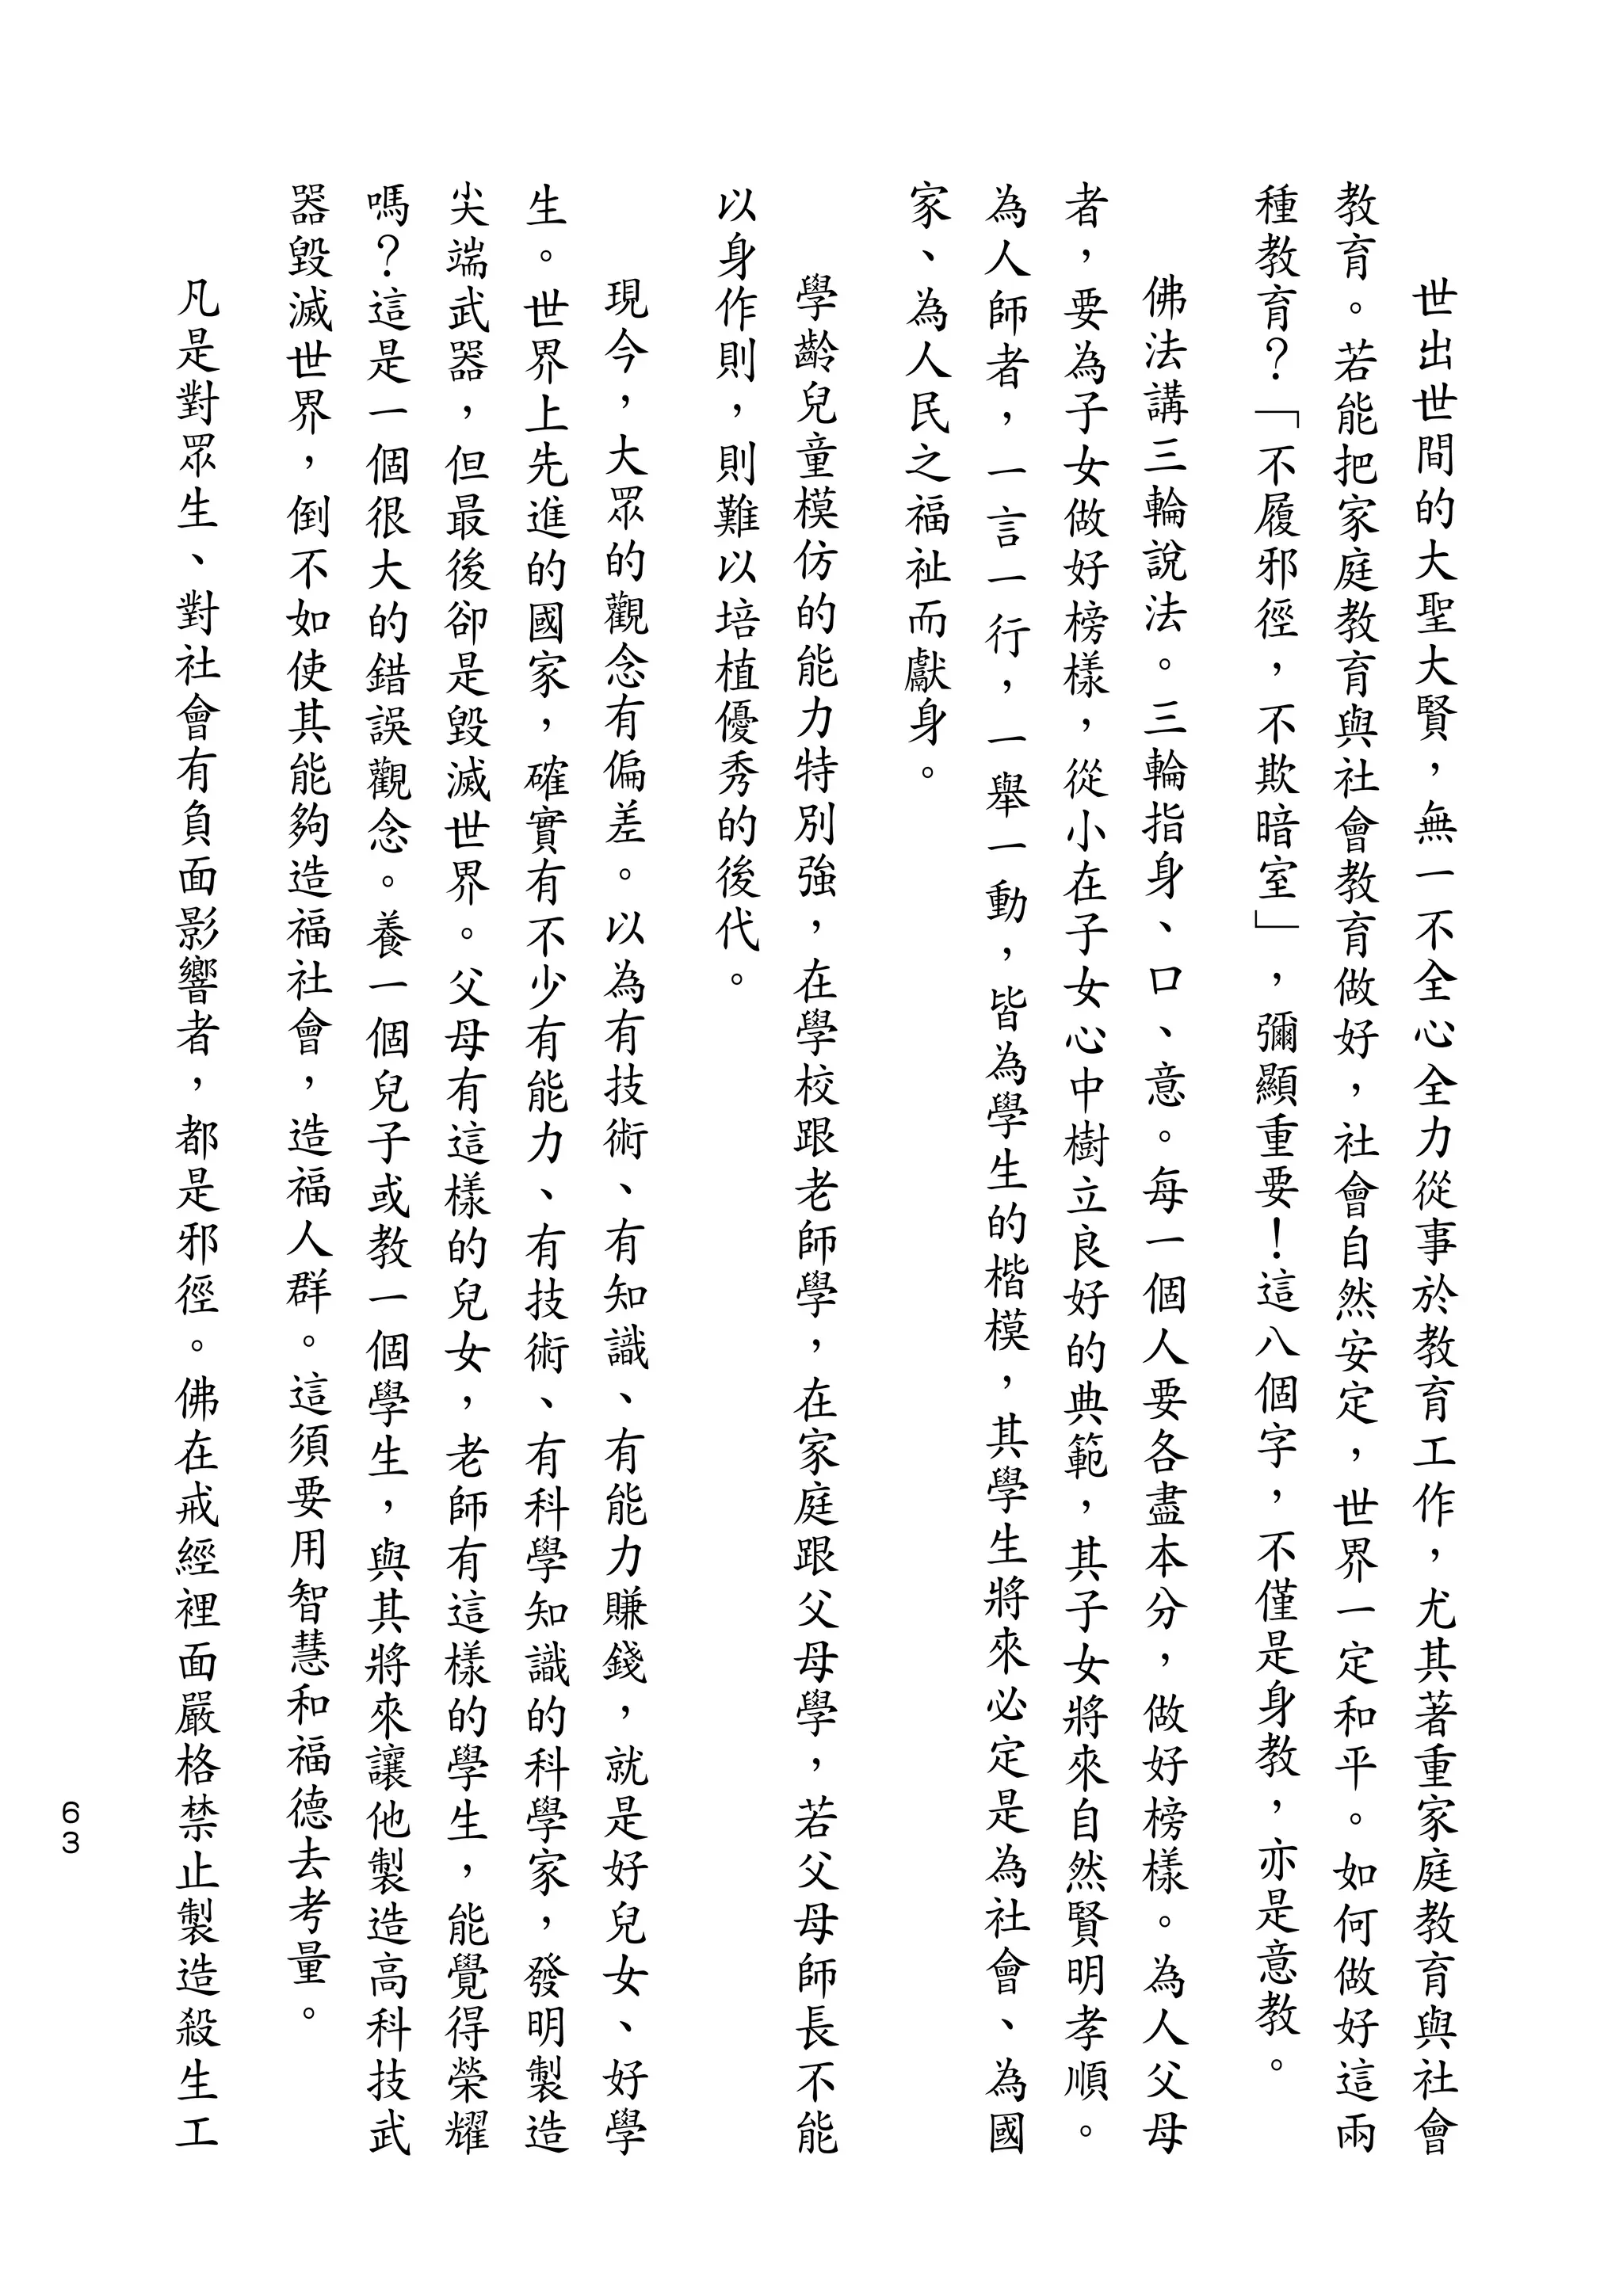 世出世間的大聖大賢，無一不全心全力從事於教育工作，尤其著重家庭教育與社會
教育。若能把家庭教育與社會教育做好，社會自然安定，世界一定和平。如何做好這兩
種教育？「不履邪徑，不欺暗室」，彌顯重要！這八個字，不僅是身教，亦是意教。
佛法講三輪說法。三輪指身、口、意。每一個人要各盡本分，做好榜樣。為人父母
者，要為子女做好榜樣，從小在子女心中樹立良好的典範，其子女將來自然賢明孝順。
為人師者，一言一行，一舉一動，皆為學生的楷模，其學生將來必定是為社會、為國
家、為人民之福祉而獻身。
學齡兒童模仿的能力特別強，在學校跟老師學，在家庭跟父母學，若父母師長不能
以身作則，則難以培植優秀的後代。
現今，大眾的觀念有偏差。以為有技術、有知識、有能力賺錢，就是好兒女、好學
生。世界上先進的國家，確實有不少有能力、有技術、有科學知識的科學家，發明製造
尖端武器，但最後卻是毀滅世界。父母有這樣的兒女，老師有這樣的學生，能覺得榮耀
嗎？這是一個很大的錯誤觀念。養一個兒子或教一個學生，與其將來讓他製造高科技武
器毀滅世界，倒不如使其能夠造福社會，造福人群。這須要用智慧和福德去考量。
凡是對眾生、對社會有負面影響者，都是邪徑。佛在戒經裡面嚴格禁止製造殺生工
63